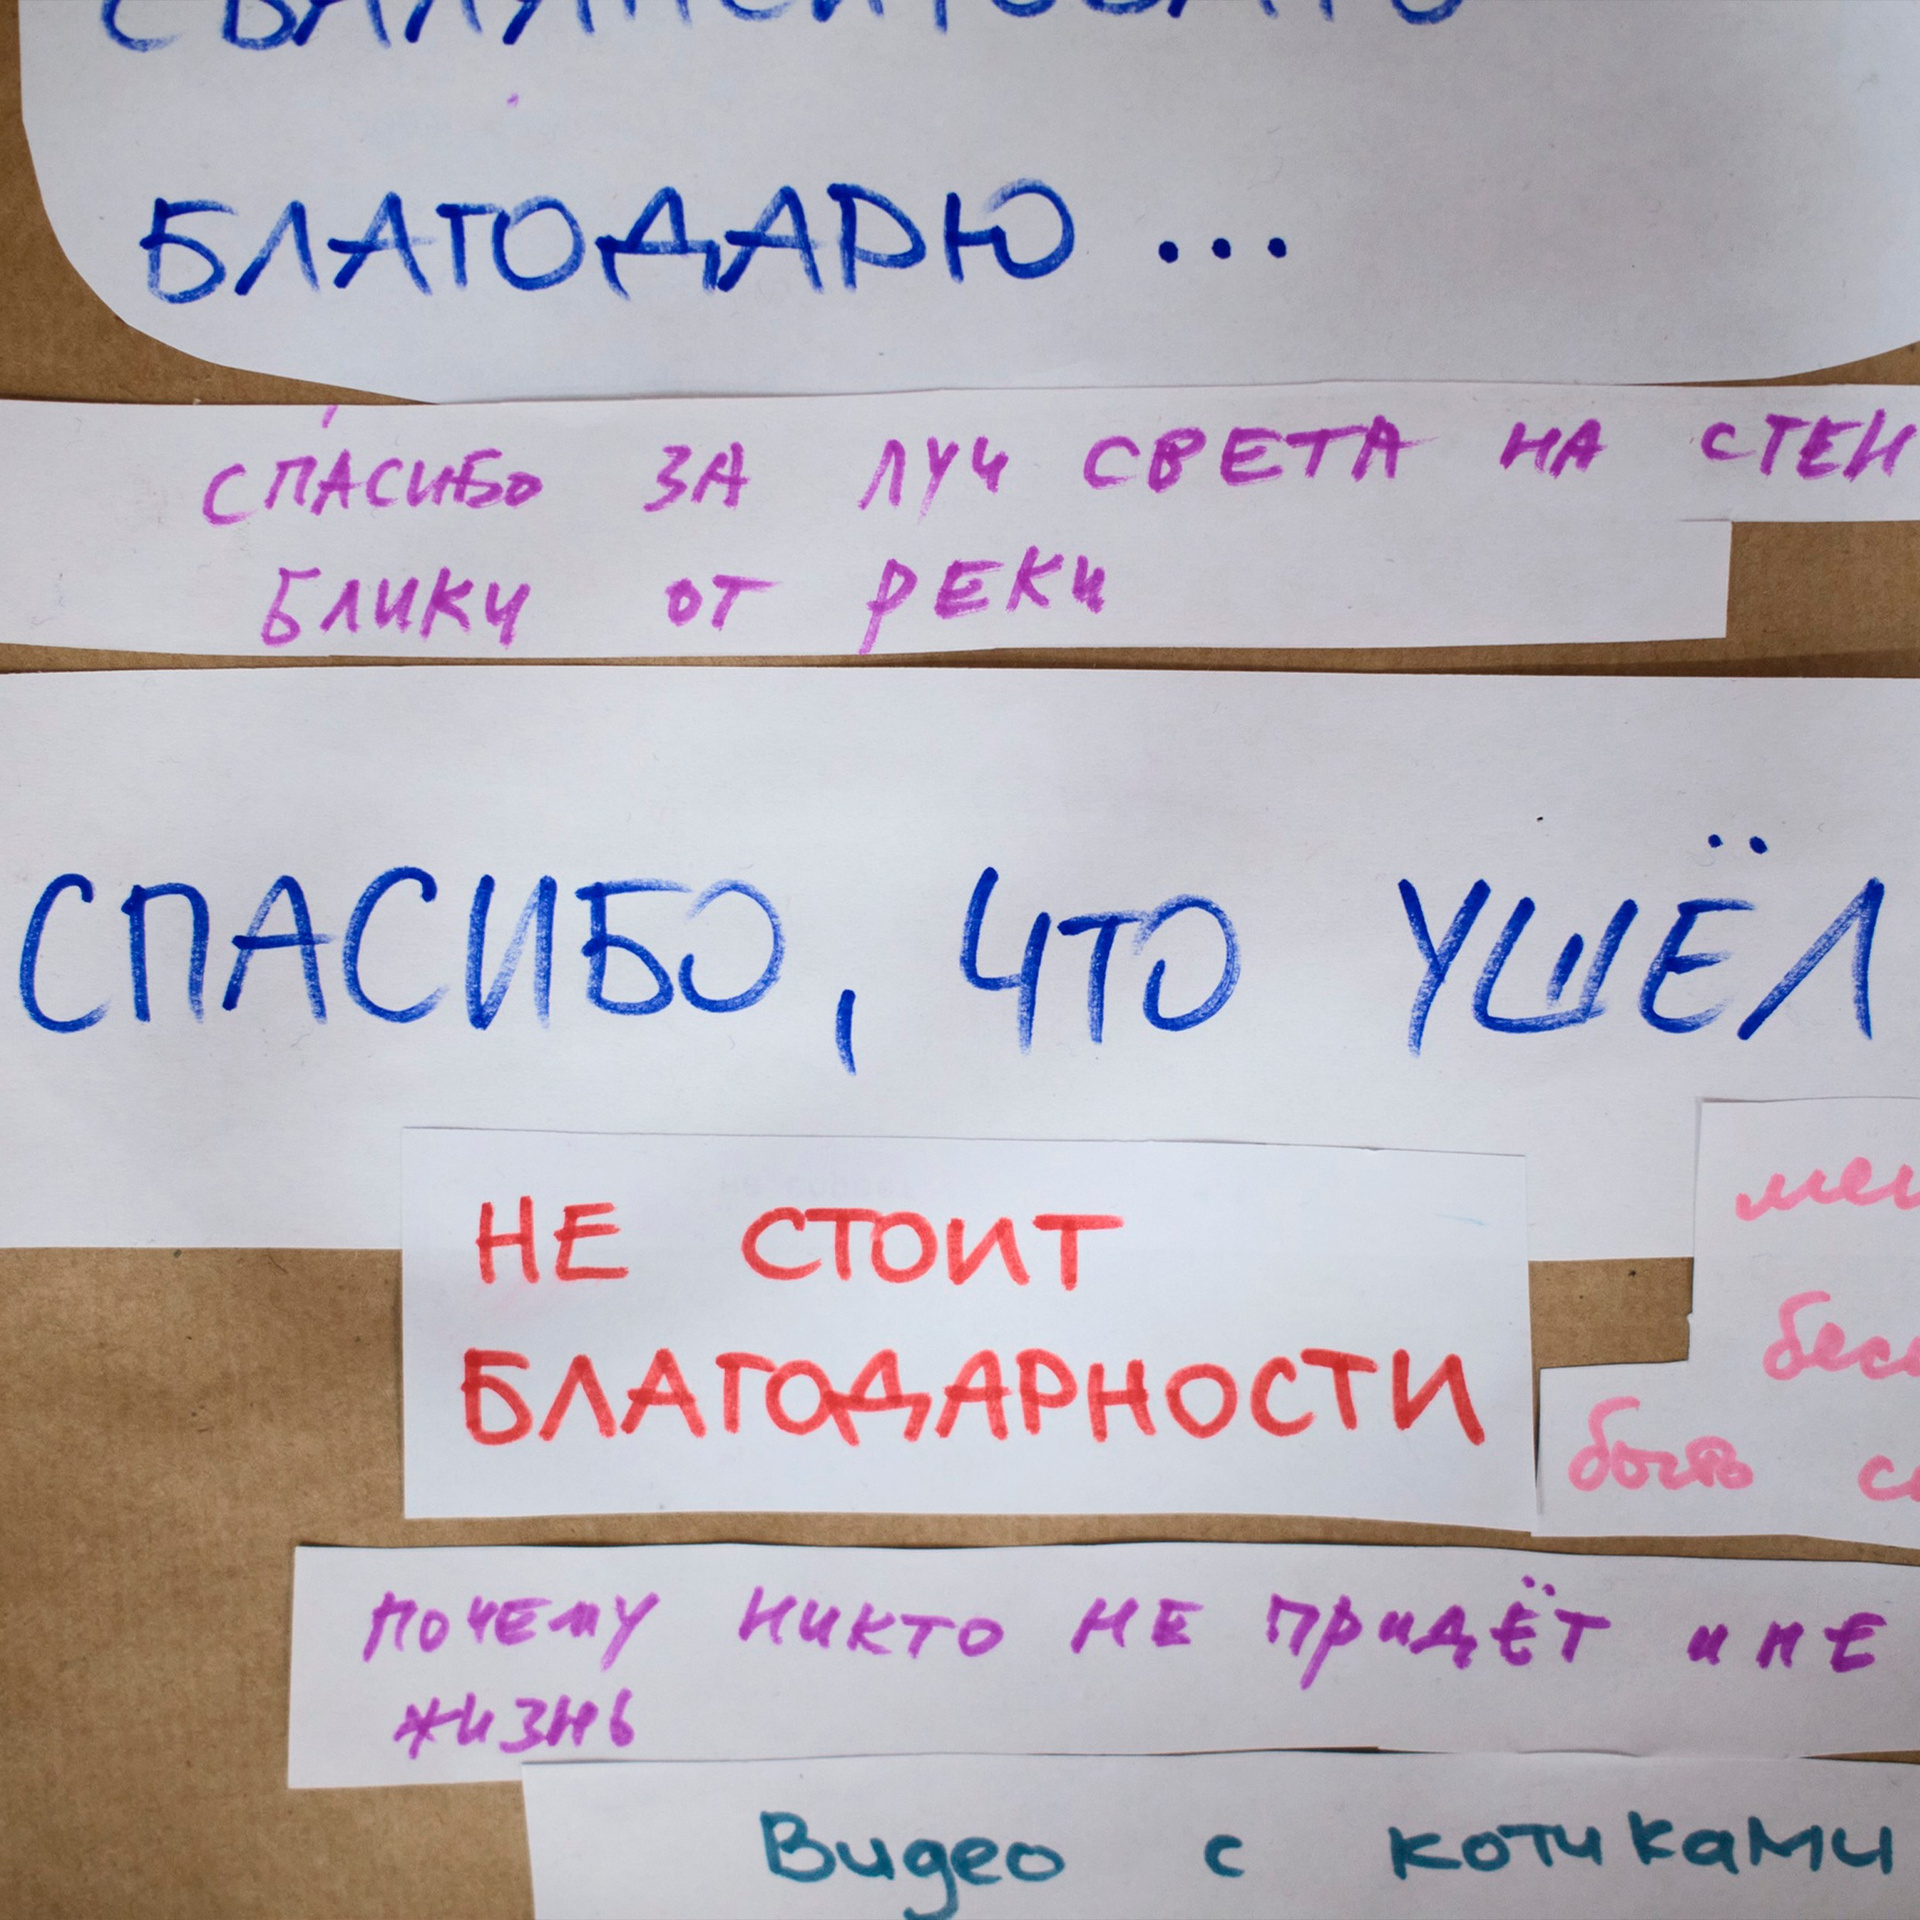 БЛАГОДАРЮ ...
СПАСИБО ЗА ЛУЧ СВЕТА НА
БЛИКИ ОТ РЕКИ
СПАСИБО, ЧТО УШЁЛ
НЕ СТОИТ
БЛАГОДАРНОСТИ
быть
ПОЧЕМУ НИКТО НЕ ПРИДЁТ И НЕ
ЖИЗНЬ
Видео с котиками